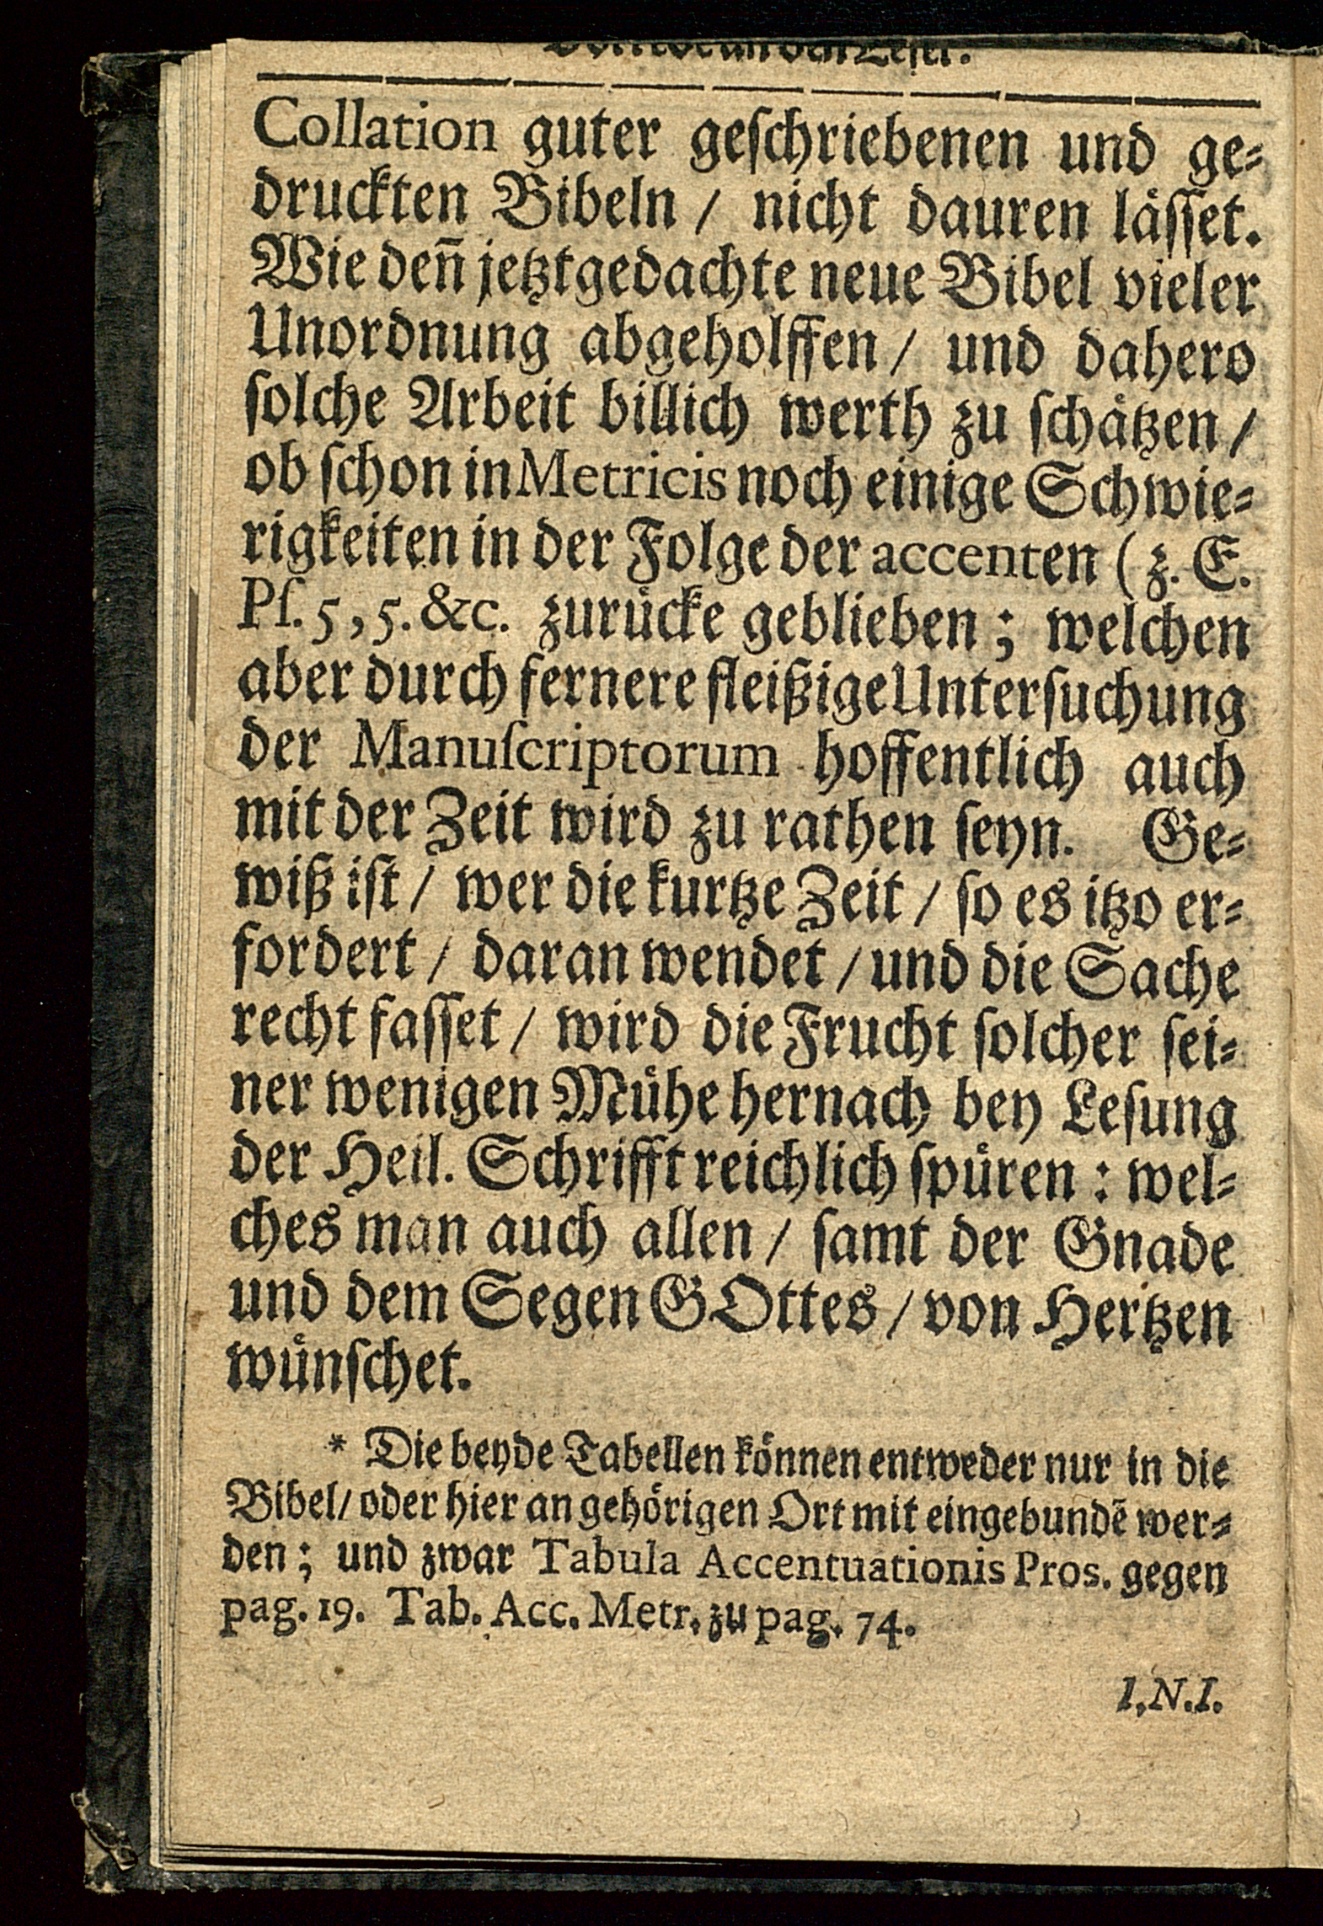 den Leser.
Collation guter geſchriebenen und ge-
druckten Bibeln / nicht dauren läſſet.
Wie deñ jetztgedachte neue Bibel vieler
Unordnung abgeholffen / und dahero
ſolche Arbeit billich werth zu ſchätzen /
ob ſchon in Metricis noch einige Schwie-
rigkeiten in der Folge der accenten ( z. E.
Pſ. 5, 5. &c. zurücke geblieben; welchen
aber durch fernere fleißige Unterſuchung
der Manuſcriptorum hoffentlich auch
mit der Zeit wird zu rathen ſeyn. Ge-
wiß iſt / wer die kurtze Zeit / ſo es itzo er-
fordert / daran wendet / und die Sache
recht faſſet / wird die Frucht ſolcher ſei-
ner wenigen Mühe hernach bey Leſung
der Heil. Schrifft reichlich ſpüren : wel-
ches man auch allen / ſamt der Gnade
und dem Segen GOttes / von Hertzen
wünſchet.
* Die beyde Tabellen können entweder nur in die
Bibel / oder hier an gehörigen Ort mit eingebundẽ wer-
den; und zwar Tabula Accentuationis Pros. gegen
pag. 19. Tab. Acc. Metr. zu pag. 74.
I.N.I.